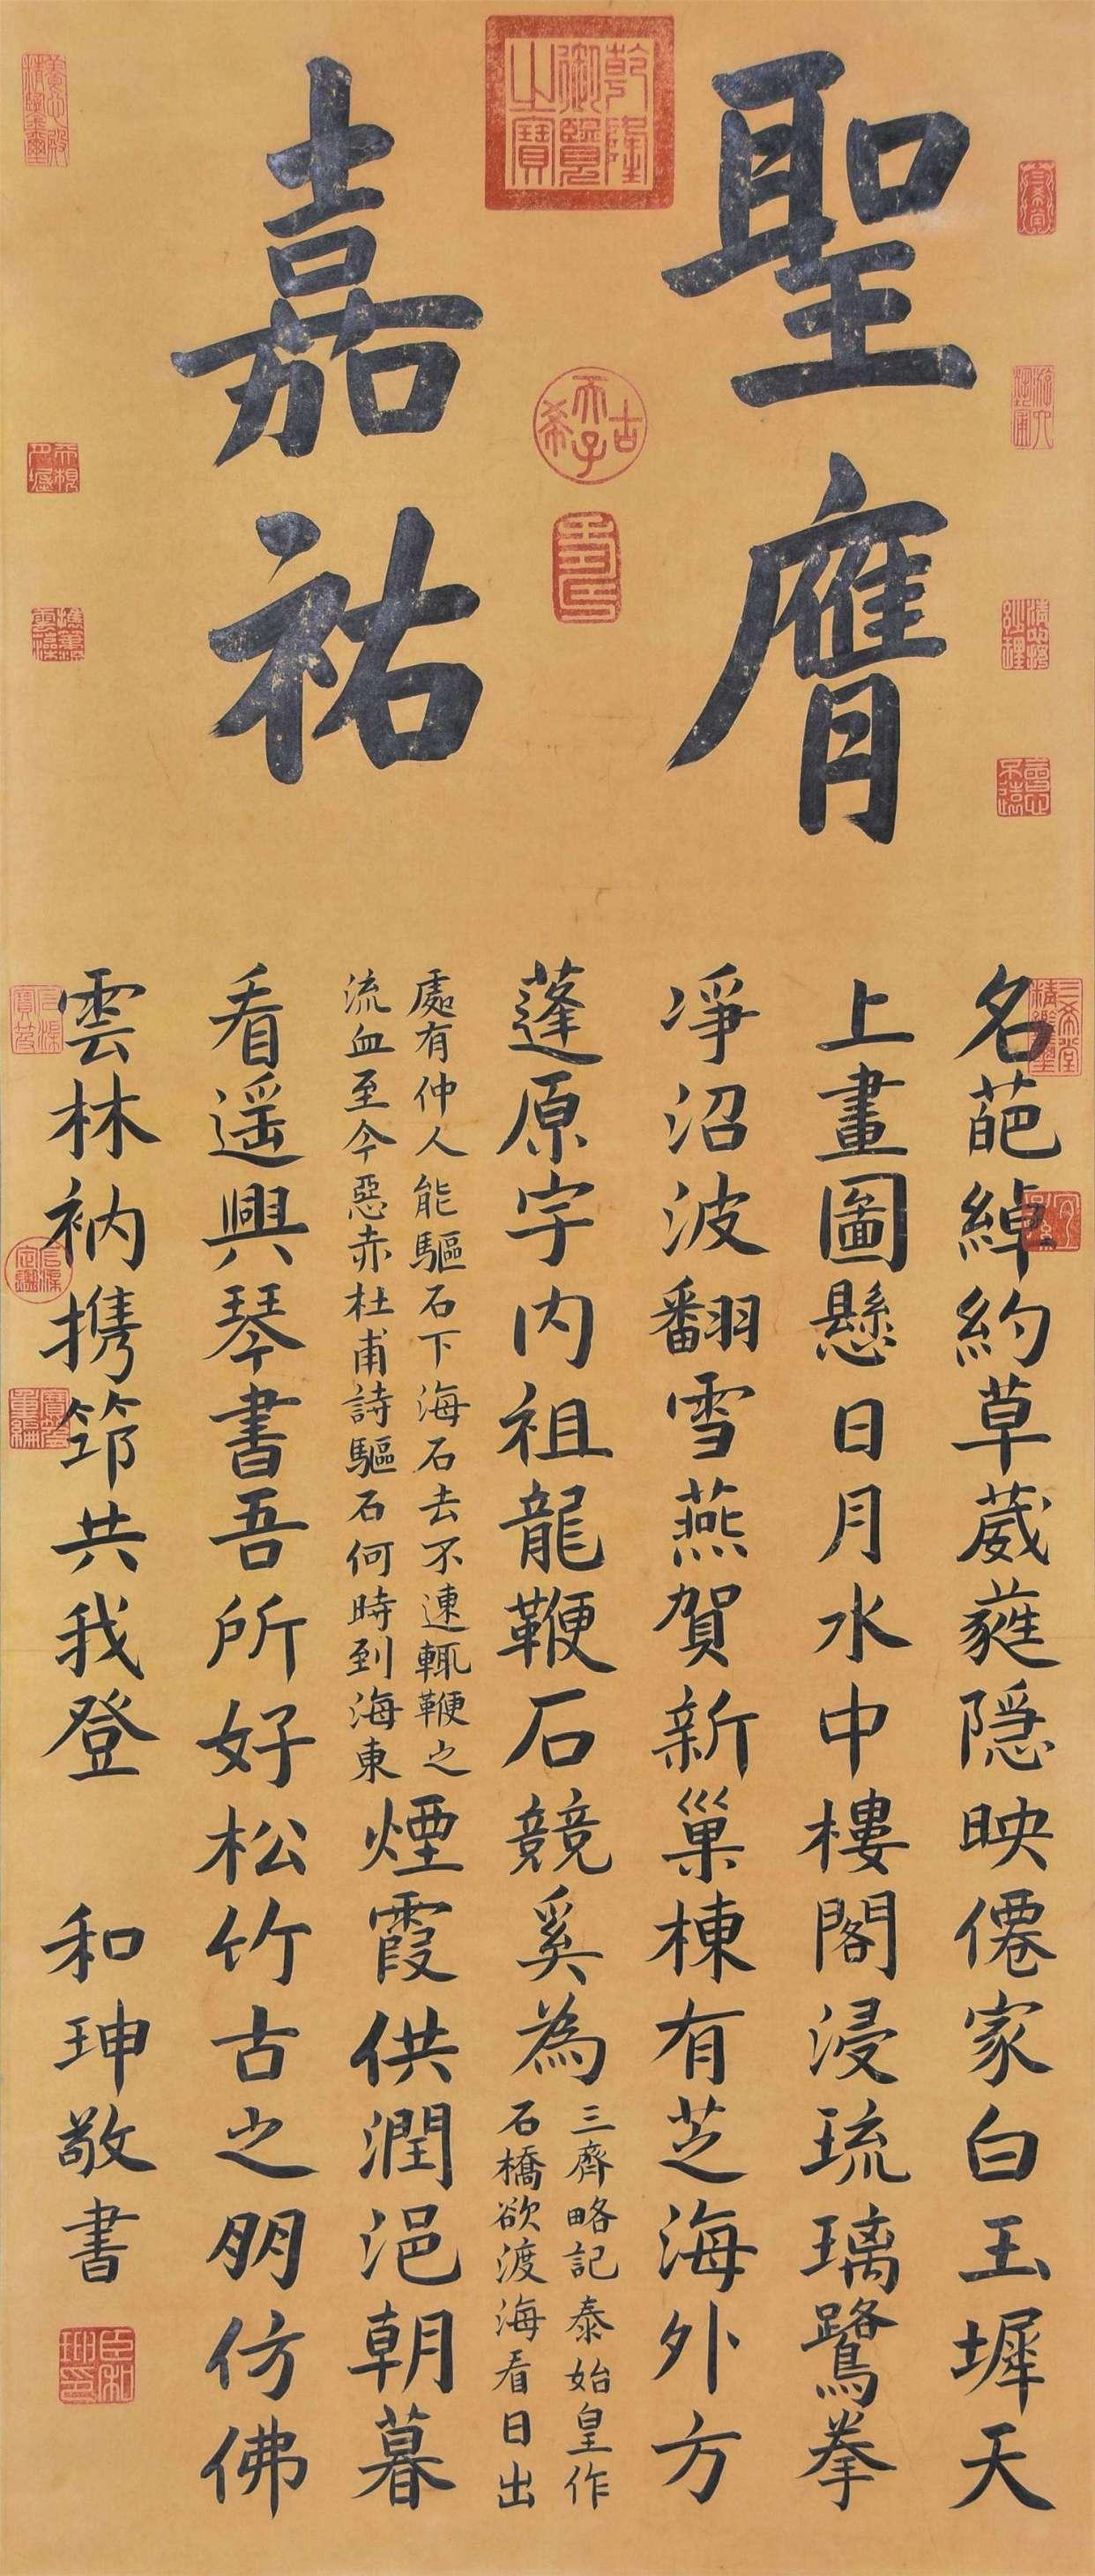 聖膺
嘉祐
乾隆御覽之寶
古希天子
壽
名葩綽約草葳蕤隱映僊家白玉墀天
上畫圖懸日月水中樓閣浸琉璃鷺拳
凈沼波翻雪燕賀新巢棟有芝海外方
蓬原宇内祖龍鞭石競奚為
三齊略記泰始皇作
石橋欲渡海看日出
處有仲人能驅石下海石去不速輒鞭之
流血至今惡赤杜甫詩驅石何時到海東
煙霞供潤浥朝暮
看遥興琴書吾所好松竹古之朋仿佛
雲林衲携筇共我登
和珅敬書
臣和珅印